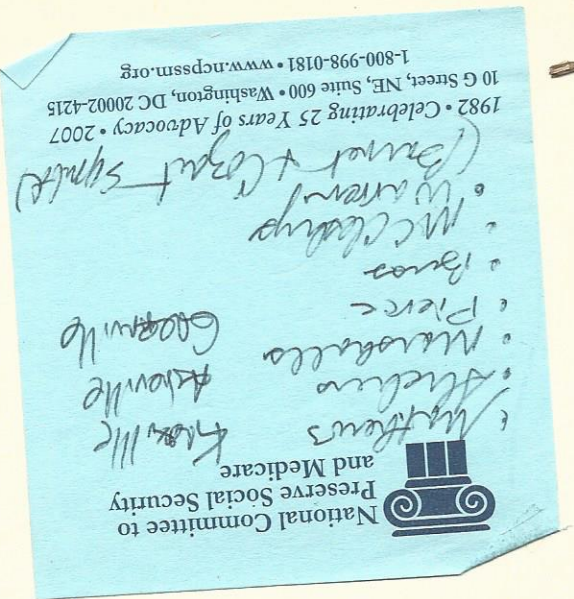 National Committee to
Preserve Social Security
and Medicare
• Matthews Knoxville
• Asheville
• Marshalls Greenville
• Pierce
•
• McCleskey
• Warren
1982 • Celebrating 25 Years of Advocacy • 2007
10 G Street, NE, Suite 600 • Washington, DC 20002-4215
1-800-998-0181 • www.ncpssm.org